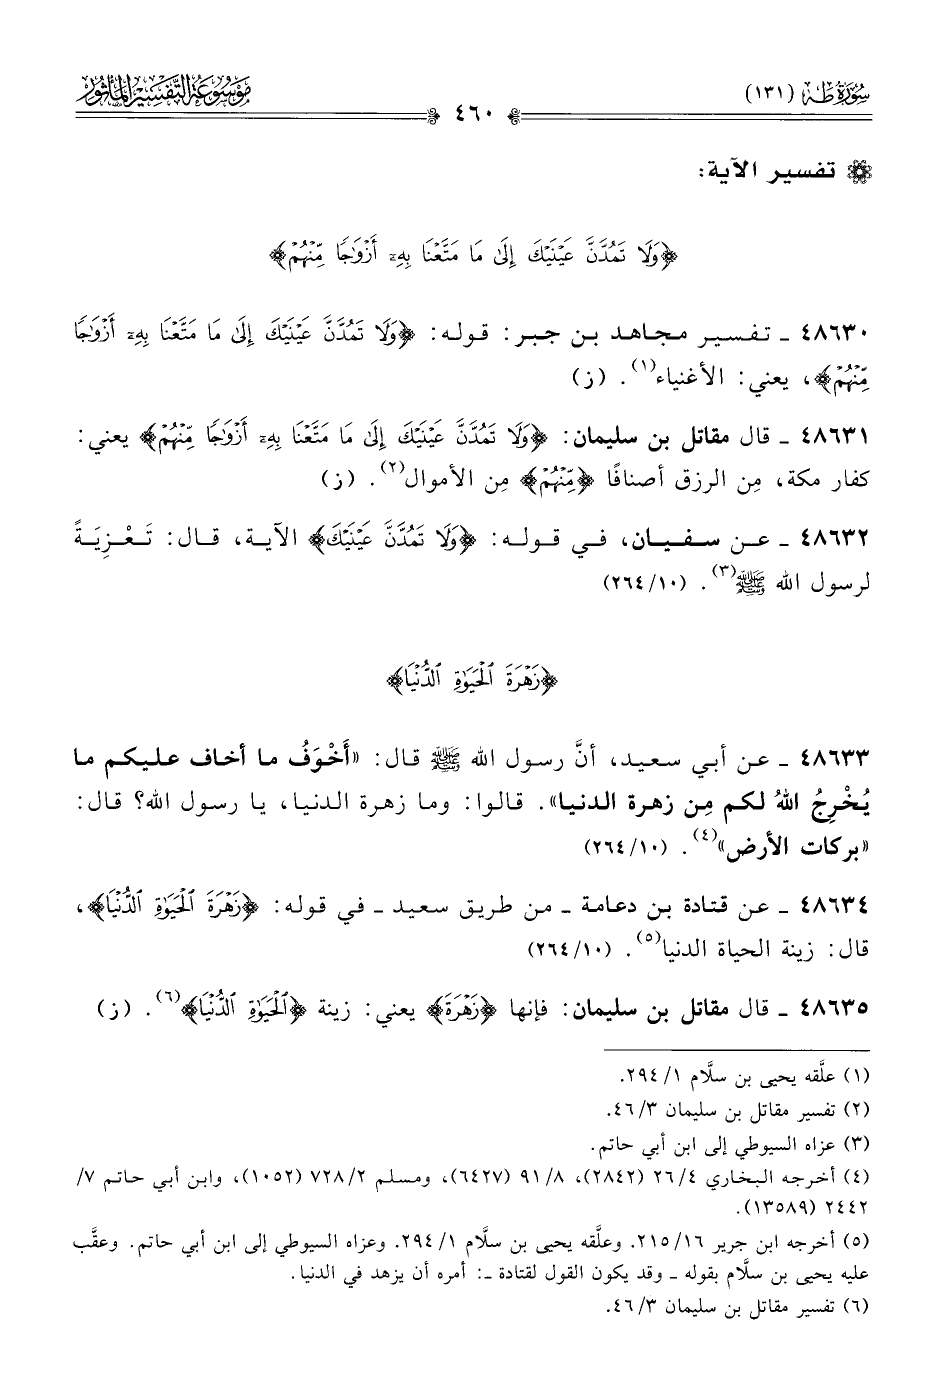 سُورَةُ طٰهٰ (١٣١)
٤٦٠
مَوْسُوعَةُ التَّفْسِيرِ المَأْثُور
تفسير الآية:
﴿وَلَا تَمُدَّنَّ عَيْنَيْكَ إِلَىٰ مَا مَتَّعْنَا بِهِۦٓ أَزْوَٰجًا مِّنْهُمْ﴾
٤٨٦٣٠ ـ تفسير مجاهد بن جبر: قوله: ﴿وَلَا تَمُدَّنَّ عَيْنَيْكَ إِلَىٰ مَا مَتَّعْنَا بِهِۦٓ أَزْوَٰجًا
مِّنْهُمْ﴾، يعني: الأغنياء(١). (ز)
٤٨٦٣١ ـ قال مقاتل بن سليمان: ﴿وَلَا تَمُدَّنَّ عَيْنَيْكَ إِلَىٰ مَا مَتَّعْنَا بِهِۦٓ أَزْوَٰجًا مِّنْهُمْ﴾ يعني:
كفار مكة، مِن الرزق أصنافًا ﴿مِّنْهُمْ﴾ مِن الأموال(٢). (ز)
٤٨٦٣٢ ـ عن سفيان، في قوله: ﴿وَلَا تَمُدَّنَّ عَيْنَيْكَ﴾ الآية، قال: تَعْزِيَةً
لرسول الله ﷺ(٣). (٢٦٤/١٠)
﴿زَهْرَةَ ٱلْحَيَوٰةِ ٱلدُّنْيَا﴾
٤٨٦٣٣ ـ عن أبي سعيد، أنَّ رسول الله ﷺ قال: «أَخْوَفُ ما أخاف عليكم ما
يُخْرِجُ اللهُ لكم مِن زهرة الدنيا». قالوا: وما زهرة الدنيا، يا رسول الله؟ قال:
«بركات الأرض»(٤). (٢٦٤/١٠)
٤٨٦٣٤ ـ عن قتادة بن دعامة ـ من طريق سعيد ـ في قوله: ﴿زَهْرَةَ ٱلْحَيَوٰةِ ٱلدُّنْيَا﴾،
قال: زينة الحياة الدنيا(٥). (٢٦٤/١٠)
٤٨٦٣٥ ـ قال مقاتل بن سليمان: فإنها ﴿زَهْرَةَ﴾ يعني: زينة ﴿ٱلْحَيَوٰةِ ٱلدُّنْيَا﴾(٦). (ز)
(١) علَّقه يحيى بن سلَّام ١/ ٢٩٤.
(٢) تفسير مقاتل بن سليمان ٣/ ٤٦.
(٣) عزاه السيوطي إلى ابن أبي حاتم.
(٤) أخرجه البخاري ٤/ ٢٦ (٢٨٤٢)، ٨/ ٩١ (٦٤٢٧)، ومسلم ٢/ ٧٢٨ (١٠٥٢)، وابن أبي حاتم ٧/
٢٤٤٢ (١٣٥٨٩).
(٥) أخرجه ابن جرير ١٦/ ٢١٥. وعلَّقه يحيى بن سلَّام ١/ ٢٩٤. وعزاه السيوطي إلى ابن أبي حاتم. وعقَّب
عليه يحيى بن سلَّام بقوله ـ وقد يكون القول لقتادة ـ: أمره أن يزهد في الدنيا.
(٦) تفسير مقاتل بن سليمان ٣/ ٤٦.